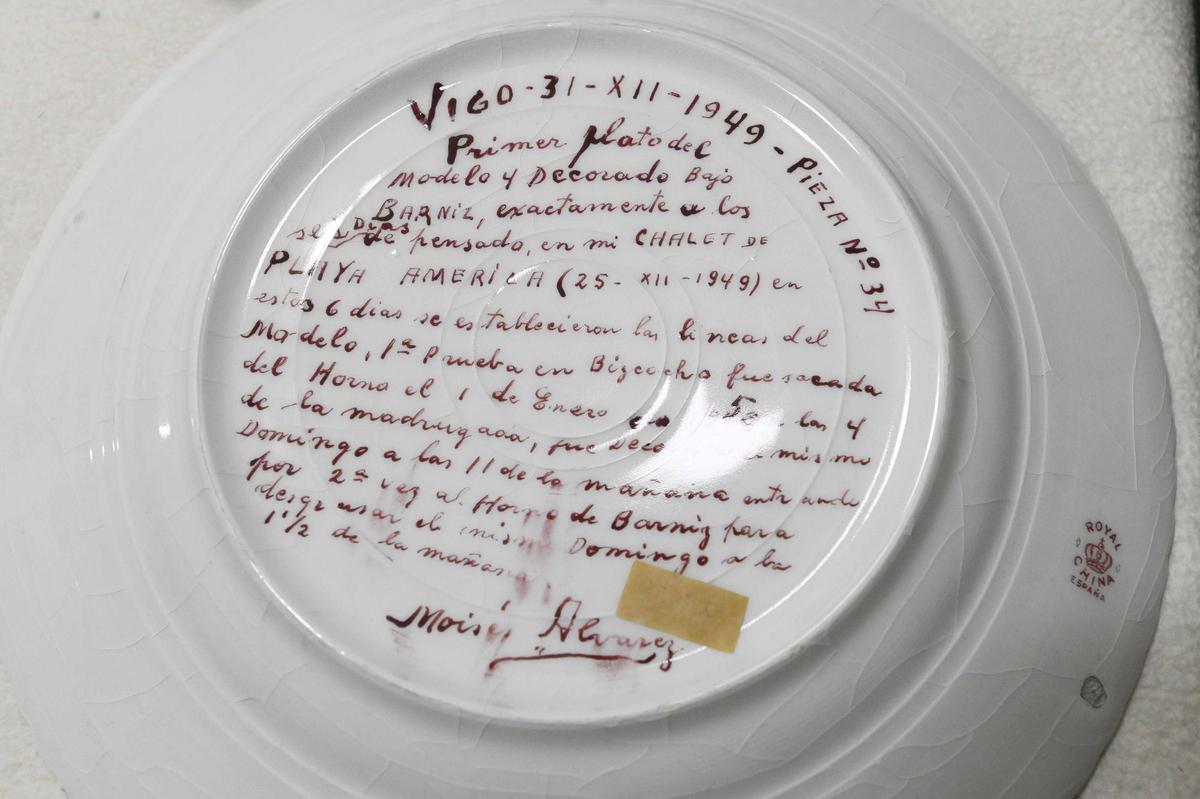 VIGO - 31 - XII - 1949 - PIEZA Nº 34
Primer plato del
Modelo y Decorado Bajo
BARNIZ, exactamente a los
seis Dias de pensado, en mi CHALET DE
PLAYA AMERICA (25 - XII - 1949) en
estos 6 dias se establecieron las lineas del
Modelo, 1ª Prueba en Bizcocho fue sacada
del Horno el 1 de Enero las 4
de la madrugada, fue mismo
Domingo a las 11 de la mañana entrando
por 2ª vez al Horno de Barniz para
desgrasar el mismo Domingo a la
1 1/2 de la mañana
Moisés Alvarez
ROYAL
CHINA
ESPAÑA